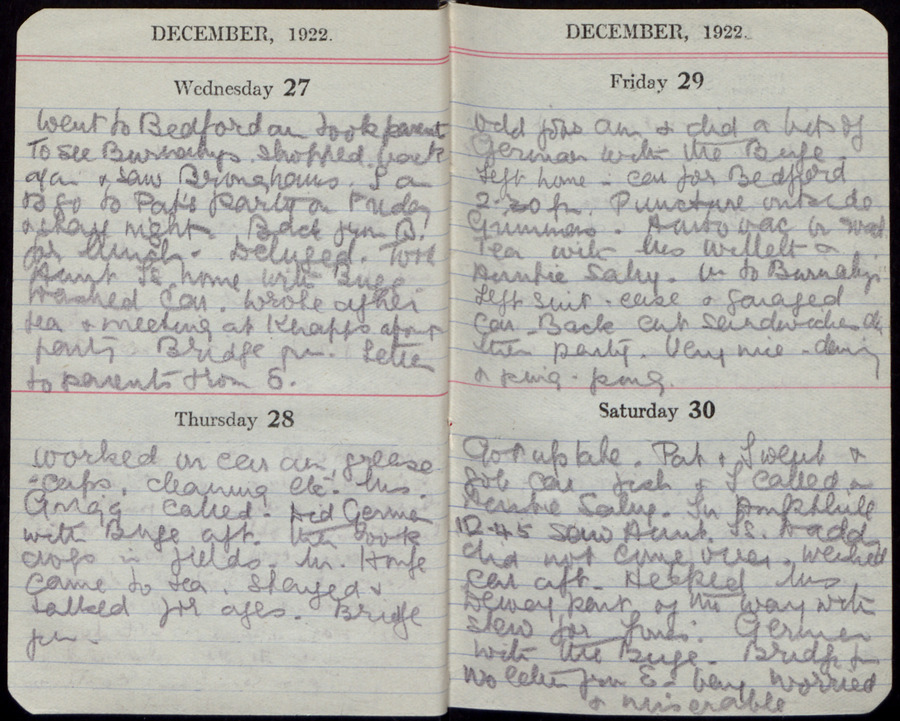 DECEMBER, 1922.
Wednesday 27
Went to Bedford am took parents
to see Burnabys. Shopped, back
again & saw Bronghams. I am
to go to Pat's party on Friday
& stay night. Back from B.
for lunch. Deluged. Took
Aunt Is. home with Buge.
Washed car. Wrote after
tea & meeting at Knapps about
party Bridge pm. Letter
to parents from E.
Thursday 28
Worked on car am, grease
caps, cleaning etc. Mrs.
Grigg called. Did German
with Buge aft. then took
dogs in fields. Mr. House
came to tea. Stayed &
talked for ages. Bridge
pm.
DECEMBER, 1922.
Friday 29
Odd jobs am & did a bit of
German with the Buge.
Left home in car for Bedford
2.30 pm. Puncture outside
Grimmers. Autovac
Tea with Mrs Willett &
Auntie Saly. On to Burnabys
Left suit-case & garaged
car. Back cut sandwiches
then party. Very nice - dancing
& ping-pong.
Saturday 30
Got up late. Pat & I went &
got car fish & I called on
Auntie Saly. In Ampthill
12.45 saw Aunt. Is.
did not come over. Washed
car aft. Helped Mrs
Dewey part of the way with
stew for Jones'. German
with the Buge. Bridge pm
No letter from E - very worried
& miserable